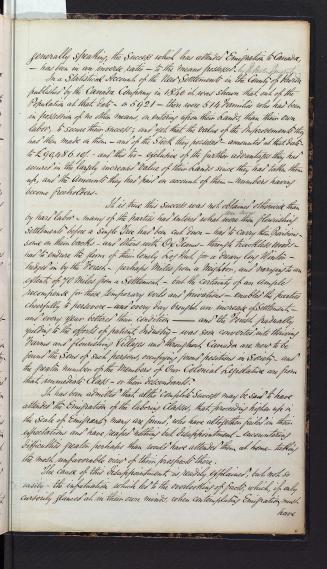 generally speaking, the Success which has attended Emigration to Canada,
– has been in an inverse ratio – to the means possessed
In a Statistical Account of the New Settlements in the County of Huron
published by the Canada Company in 1840 it was shewn that out of the
Population at that date – 5921 – there were 514 Families who had been
in possession of no other means, on entering upon their Lands, than their own
labor, to secure their Success; and yet that the value of the Improvements they
had then made in them – and of the Stock they possessed – amounted at that date
to £90,486 – and this too – exclusive of the further advantages they had
secured in the largely increased Value of their Lands since they had taken them
up, and the Amounts they had paid on account of them – numbers having
become freeholders.
It is true this Success was not obtained otherwise than
by hard labor – many of the parties had entered what were then flourishing
Settlements before a Single Tree had been cut down – had to carry their Provisions
some on their backs – and others with Ox Teams – through trackless woods –
had to endure the gloom of their lonely Log hut for a dreary long Winter –
hedged in by the Forest – perhaps Miles from a Neighbor, and varying to an
extent of 70 Miles from a Settlement – but the certainty of an ample
recompense for these temporary toils and privations – enabled the parties
cheerfully to persevere – and every day brought an increase of Settlement –
and every year bettered their Condition – and the Forest gradually
yielding to the efforts of patient Industry – was soon converted into thriving
Farms and flourishing Villages and throughout Canada are now to be
found the Sons of such persons occupying proud positions in Society – and
the greater number of the Members of Our Colonial Legislature are from
that immediate Class – or their descendants.
It has been admitted that altho' complete Success may be said to have
attended the Emigration of the laboring Classes, that proceeding higher up in
the Scale of Emigrants, many are found, who have altogether failed in their
expectations and have reaped nothing but disappointment, – encountering
difficulties greater perhaps than would have attended them at home – taking
the most unfavorable view of their prospects there.
The cause of this disappointment is readily explained, but not so
easily – the infatuation which led to the overlooking of facts, which, if only
cursorily glanced at in their own minds when contemplating Emigration must
have